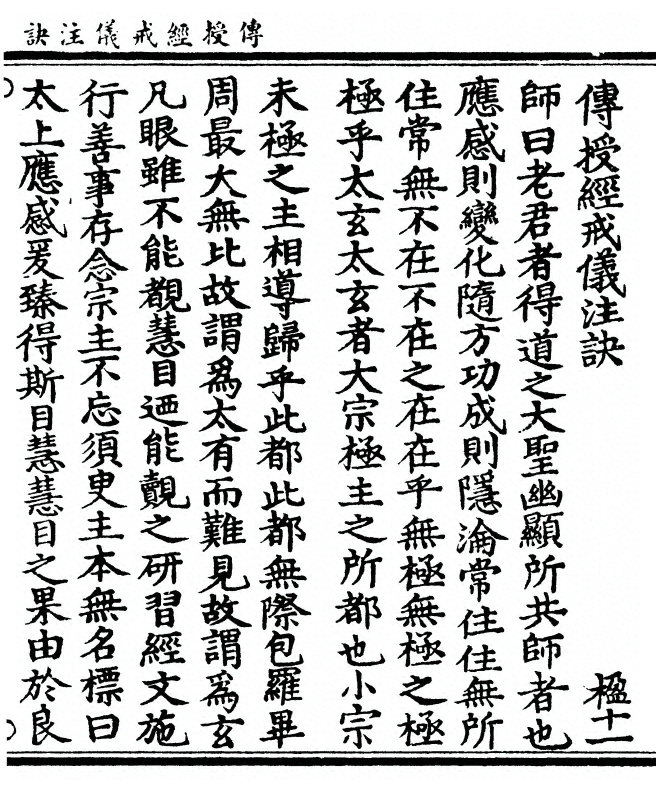 傳授經戒儀注訣
傳授經戒儀注訣 楹十一
師曰老君者得道之大聖幽顯所共師者也
應感則變化隨方功成則隱淪常住住無所
住常無不在不在之在在乎無極無極之極
極乎太玄太玄者大宗極主之所都也小宗
未極之主相導歸乎此都此都無際包羅畢
周最大無比故謂爲太有而難見故謂爲玄
凡眼雖不能覩慧目迺能覿之研習經文施
行善事存念宗主不忘須臾主本無名標曰
太上應感爰臻得斯目慧慧目之果由於良